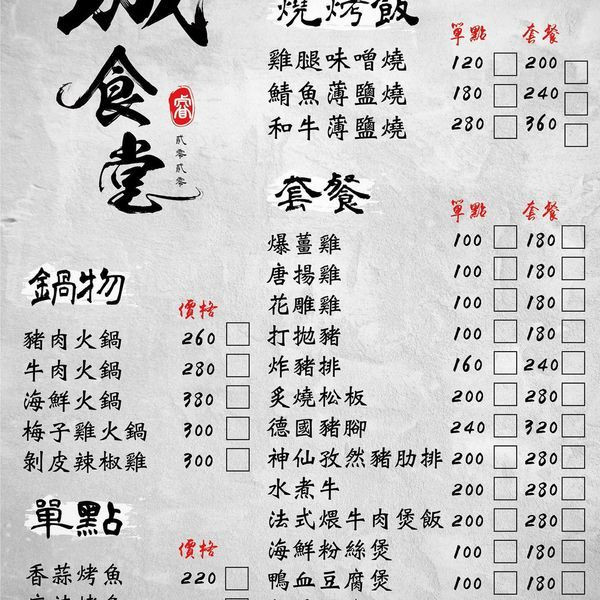 食堂
睿
貳零貳零
鍋物
價格
豬肉火鍋 260
牛肉火鍋 280
海鮮火鍋 380
梅子雞火鍋 300
剝皮辣椒雞 300
單點
價格
香蒜烤魚 220
燒烤飯
單點 套餐
雞腿味噌燒 120 200
鯖魚薄鹽燒 180 240
和牛薄鹽燒 280 360
套餐
單點 套餐
爆薑雞 100 180
唐揚雞 100 180
花雕雞 100 180
打拋豬 100 180
炸豬排 160 240
炙燒松板 200 280
德國豬腳 240 320
神仙孜然豬肋排 200 280
水煮牛 200 280
法式煨牛肉煲飯 200 280
海鮮粉絲煲 100 180
鴨血豆腐煲 100 180